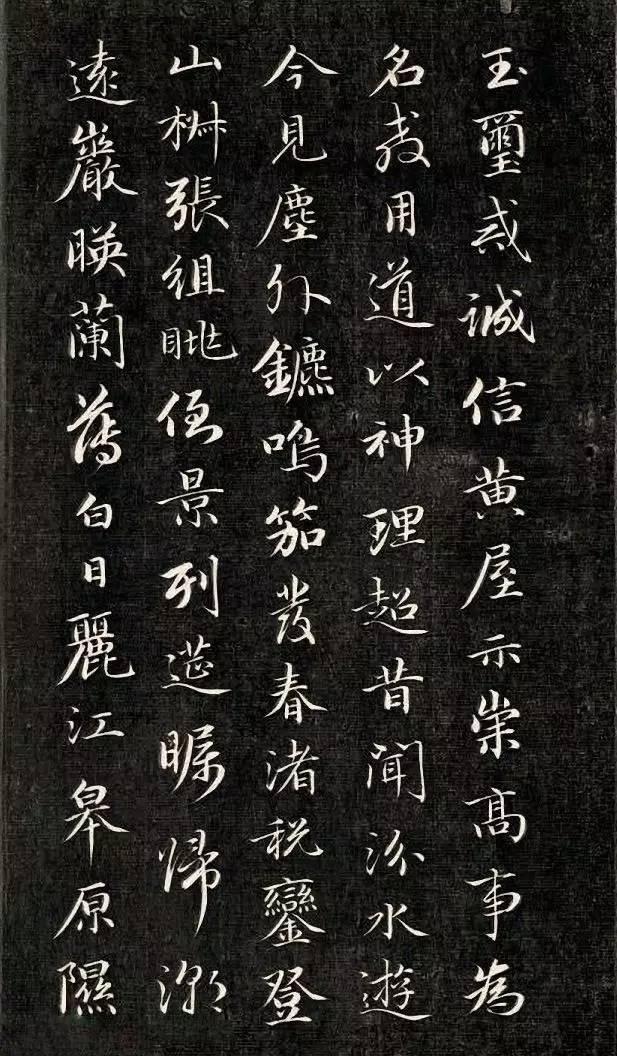 玉璽戒誠信黄屋示崇高事為
名教用道以神理超昔聞汾水遊
今見塵外鑣鳴笳發春渚税鑾登
山椒張組眺倒景列筵瞩歸潮
遠巖暎蘭薄白日麗江皋原隰